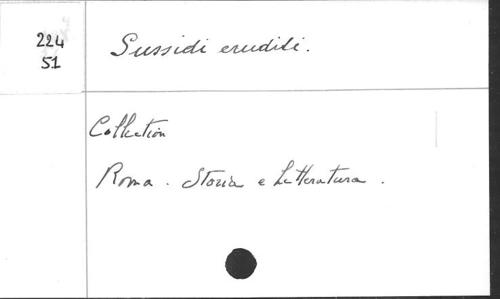 224
51
Sussidi eruditi.
Collection
Roma. Storia e Letteratura.